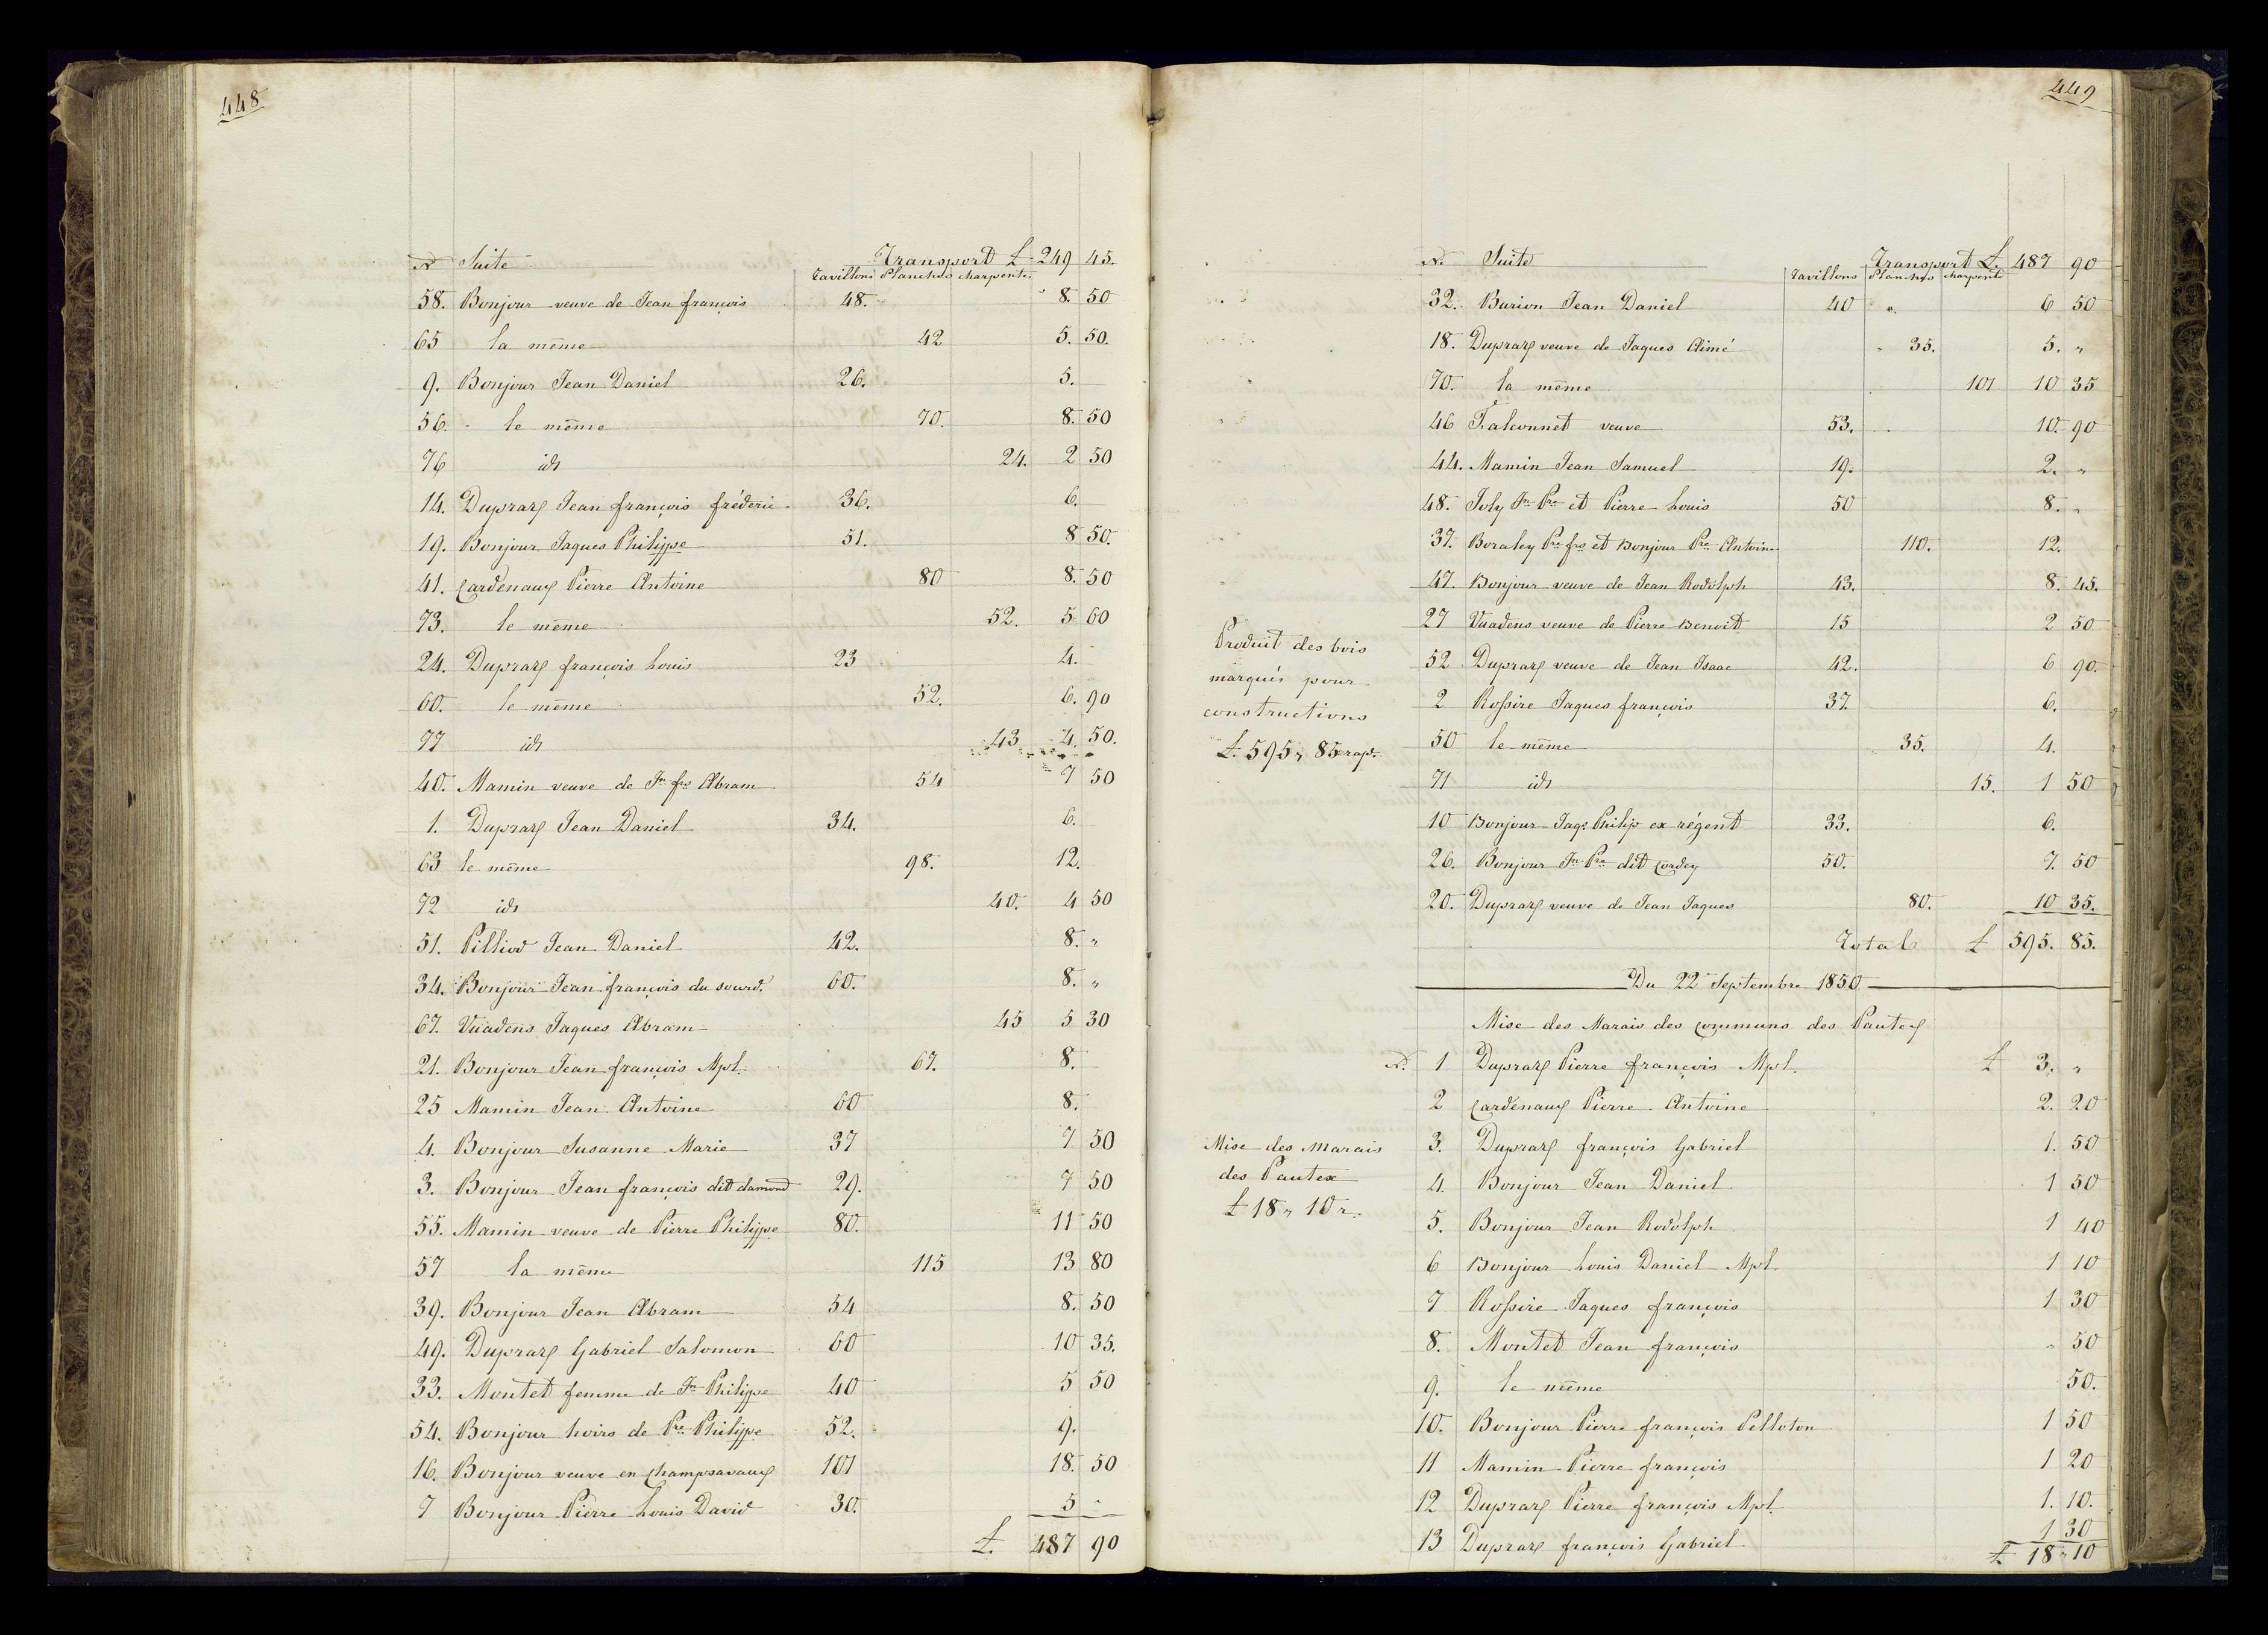 448
N° Suite Transport £ 249 45.
Tavillons Planches charpente
58. Bonjour veuve de Jean françois 48. 8. 50
65 la même 42 5. 50.
9. Bonjour Jean Daniel 26. 5.
56. le même 70. 8. 50
76 id 24. 2 50
14. Dupraz Jean françois fréderic 36. 6.
19. Bonjour Jaques Philippe 51. 8 50.
41. Cardenaux Pierre Antoine 80 8. 50
73. le même 52. 5 60
24. Dupraz françois Louis 23 4.
60. le même 52. 6. 90
77 id 43 4. 50.
40. Mamin veuve de Jn frs Abram 54 7 50
1. Dupraz Jean Daniel 34. 6.
63 le même 98. 12.
72 id 40. 4 50
51. Pilliod Jean Daniel 42. 8. "
34. Bonjour Jean françois du sourd. 60. 8. "
67. Vuadens Jaques Abram 45 5 30
21. Bonjour Jean françois Mpl. 67. 8.
25 Mamin Jean Antoine 60 8.
4. Bonjour Susanne Marie 37 7 50
3. Bonjour Jean françois dit damond 29. 7 50
55. Mamin veuve de Pierre Philippe 80. 11 50
57 la même 115 13 80
39. Bonjour Jean Abram 54 8. 50
49. Dupraz Gabriel Salomon 60 10 35.
33. Montet femme de Jn Philippe 40 5 50
54. Bonjour hoirs de Pre Philippe 52. 9.
16. Bonjour veuve en Champsavaux 101 18. 50
7 Bonjour Pierre Louis David 30. 5 "
£. 487 90
449
N°. Suite Transport £. 487 90
Tavillons Planches charpente
32. Burion Jean Daniel 40 " 6 50
18. Dupraz veuve de Jaques Aimé 35. 5. "
70. la même 101 10 35
46 Falconnet veuve 53. 10. 90
44. Mamin Jean Samuel 19. 2. "
48. Joly Jn Pre et Pierre Louis 50 8. "
37. Boraley Pre frs et Bonjour Pre Antoine 110. 12.
47. Bonjour veuve de Jean Rodolph 43. 8. 45.
27 Vuadens veuve de Pierre Benoit 15 2 50
52 Dupraz veuve de Jean Isaac 42. 6 90.
2 Rossire Jaques françois 37. 6.
50 le même 35. 4.
71 id 15. 1 50
10 Bonjour Jaqs Philip ex régent 33. 6.
26. Bonjour Jn Pre dit Cordey 50. 7. 50
20. Dupraz veuve de Jean Jaques 80. 10 35.
Total £ 595. 85.
Produit des bois
marqués pour
constructions
£. 595 " 85 rap.
Du 22 Septembre 1850
Mise des Marais des communs des Pautex
N°. 1 Dupraz Pierre françois Mpl. £ 3. "
2 Cardenaux Pierre Antoine 2. 20
3. Dupraz françois Gabriel 1. 50
4. Bonjour Jean Daniel 1 50
5. Bonjour Jean Rodolph 1 40
6 Bonjour Louis Daniel Mpl. 1 10
7 Rossire Jaques françois 1 30
8. Montet Jean françois " 50
9. le même 50.
10. Bonjour Pierre françois Pelloton 1 50
11 Mamin Pierre françois 1 20
12 Dupraz Pierre françois Mpl. 1. 10.
13 Dupraz françois Gabriel 1 30
£. 18 " 10
Mise des Marais
des Pautex
£ 18 " 10 r.